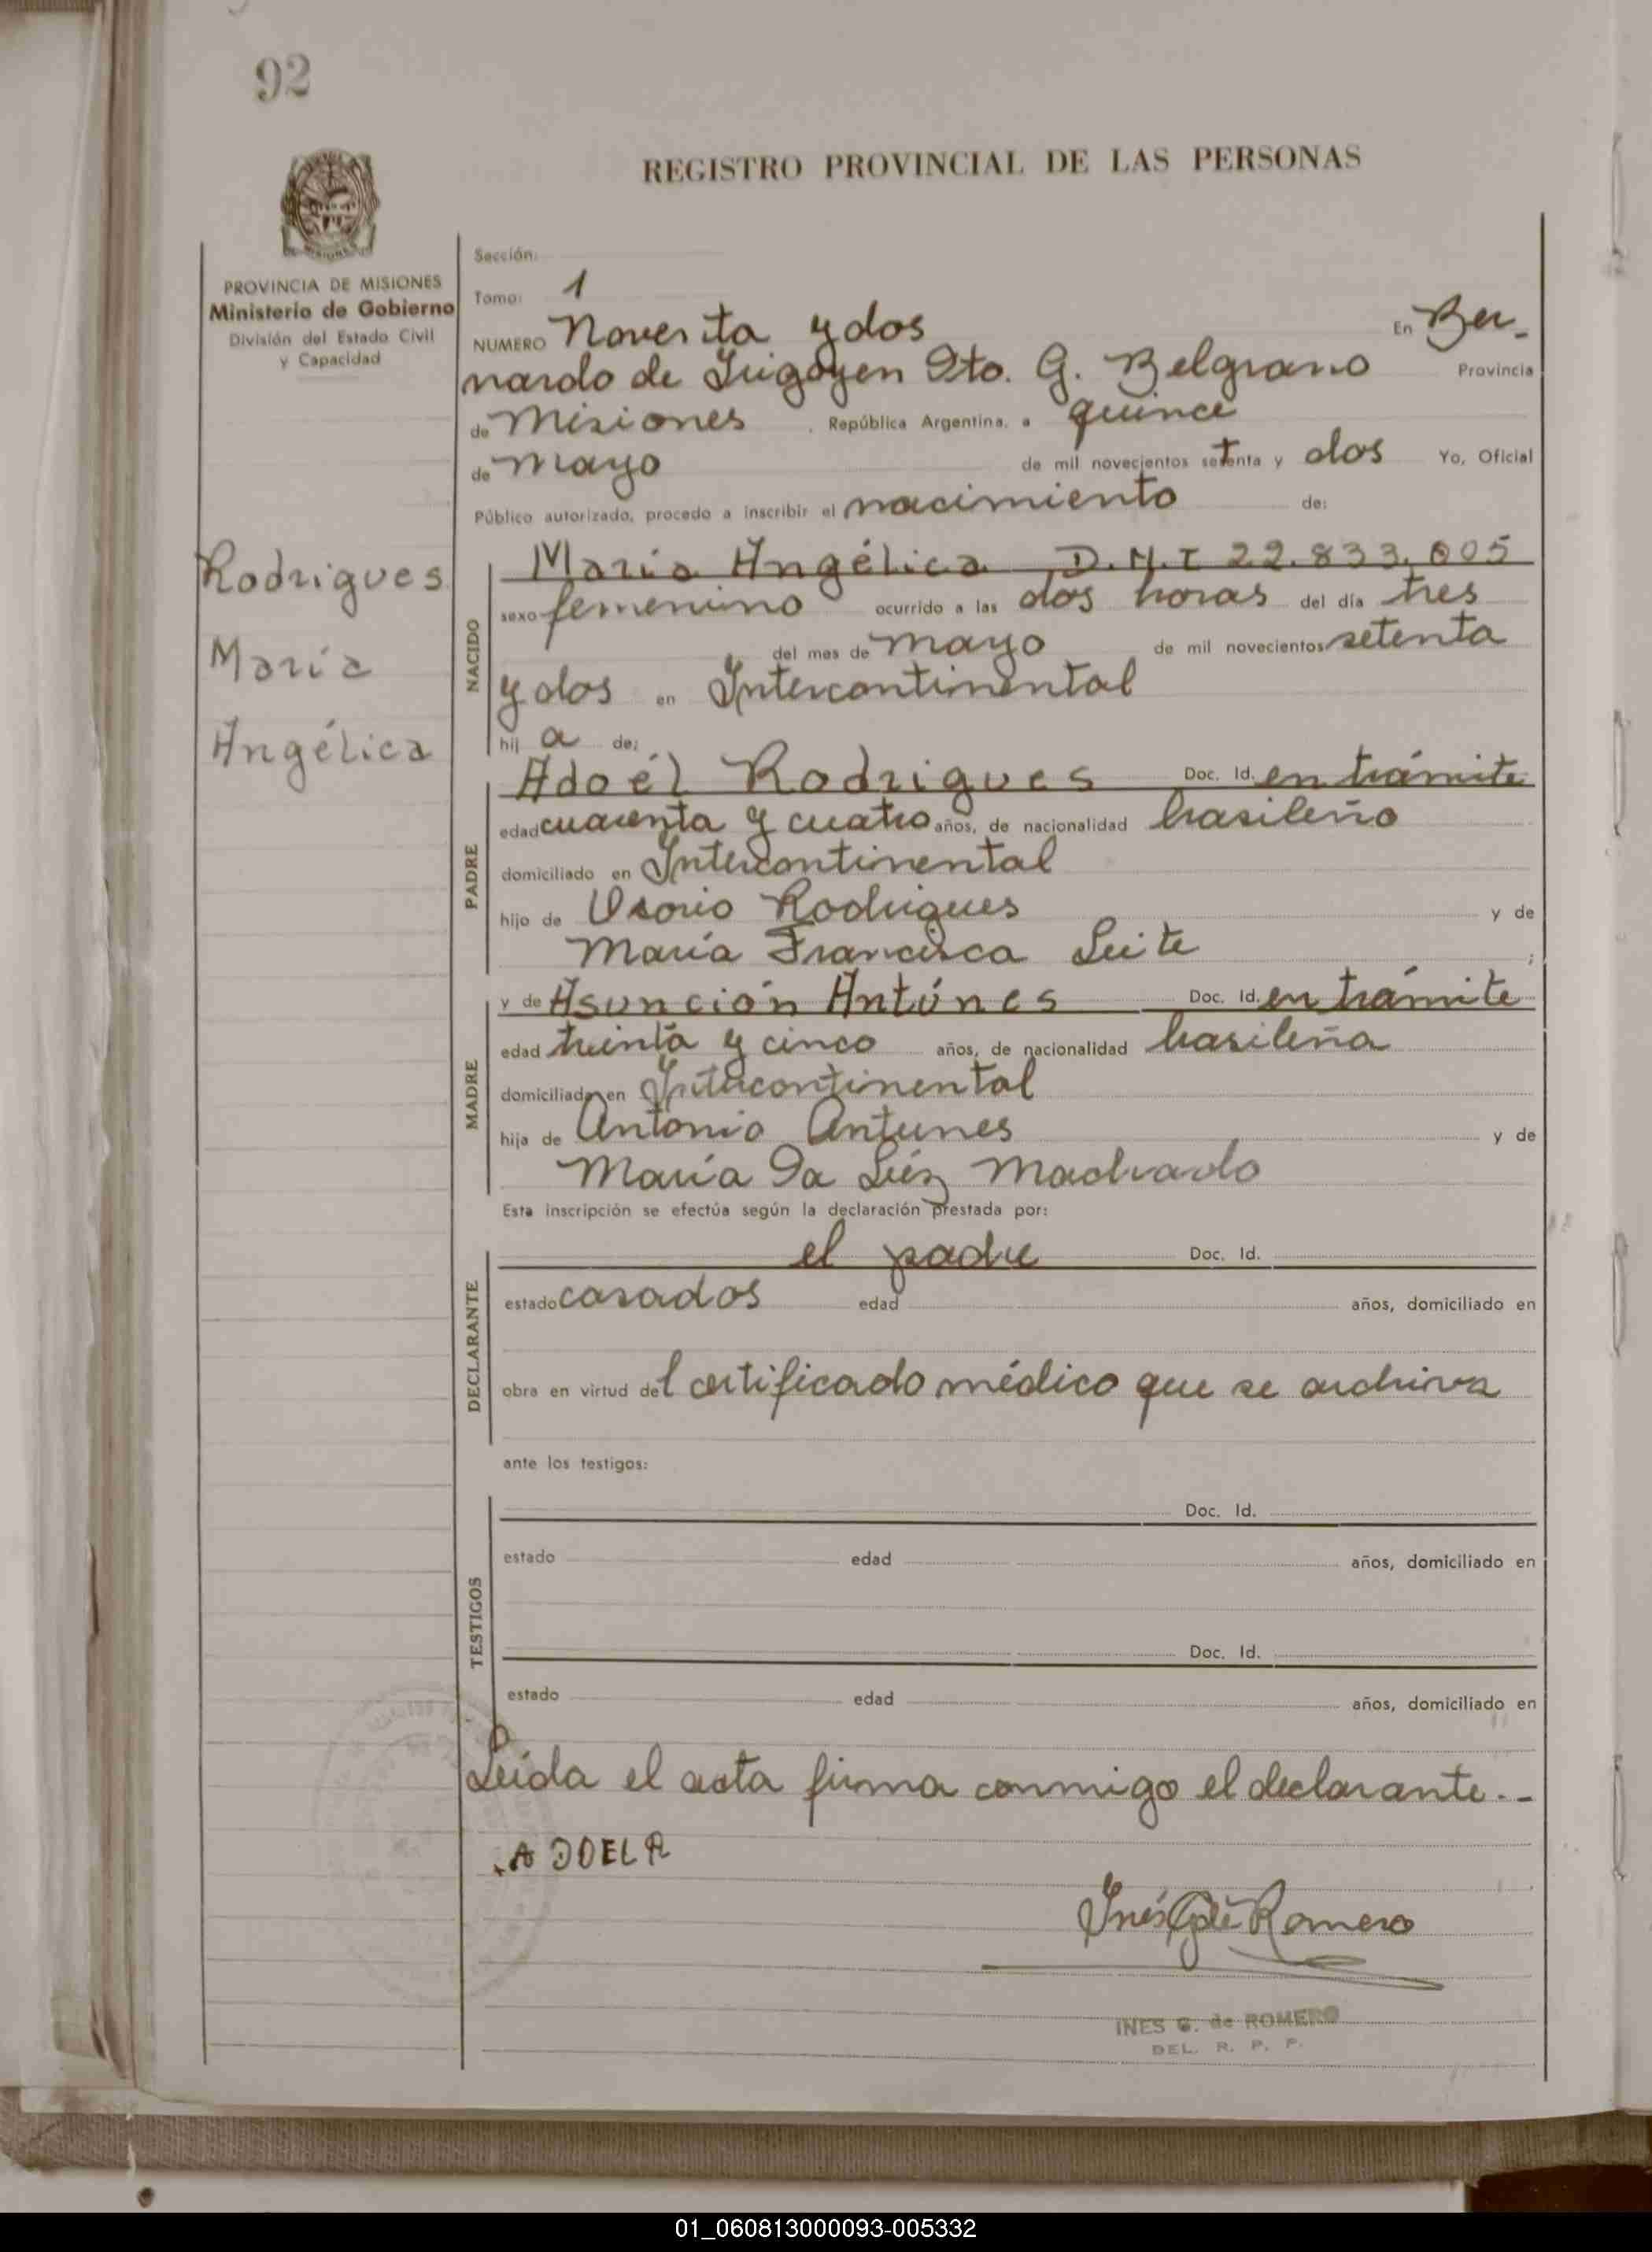 92
REGISTRO PROVINCIAL DE LAS PERSONAS
PROVINCIA DE MISIONES
Ministerio de Gobierno
División del Estado Civil
y Capacidad
Rodrigues
María
Angélica
Sección:
Tomo: 1
NUMERO Noventa y dos En Ber-
nardo de Irigoyen Dto. G. Belgrano Provincia
de Misiones , República Argentina, a quince
de mayo de mil novecientos setenta y dos Yo, Oficial
Público autorizado, procedo a inscribir el nacimiento de:
NACIDO
María Angélica D.N.I 22.833.005
sexo femenino ocurrido a las dos horas del día tres
del mes de mayo de mil novecientos setenta
y dos en Intercontinental
hij a de:
PADRE
Adoél Rodrigues Doc. Id. en trámite
edad cuarenta y cuatro años, de nacionalidad brasileño
domiciliado en Intercontinental
hijo de Osorio Rodrigues y de
María Francisca Leite ;
MADRE
y de Asunción Antúnes Doc. Id. en trámite
edad treinta y cinco años, de nacionalidad brasileña
domiciliada en Intercontinental
hija de Antonio Antunes y de
María Da Luz Machado
Esta inscripción se efectúa según la declaración prestada por:
DECLARANTE
el padre Doc. Id.
estado casados edad años, domiciliado en
obra en virtud del certificado médico que se archiva
ante los testigos:
TESTIGOS
Doc. Id.
estado edad años, domiciliado en
Doc. Id.
estado edad años, domiciliado en
Leída el acta firma conmigo el declarante.-
ADOEL R
Inés G. de Romero
INES G. de ROMERO
DEL. R. P. P.
01_060813000093-005332